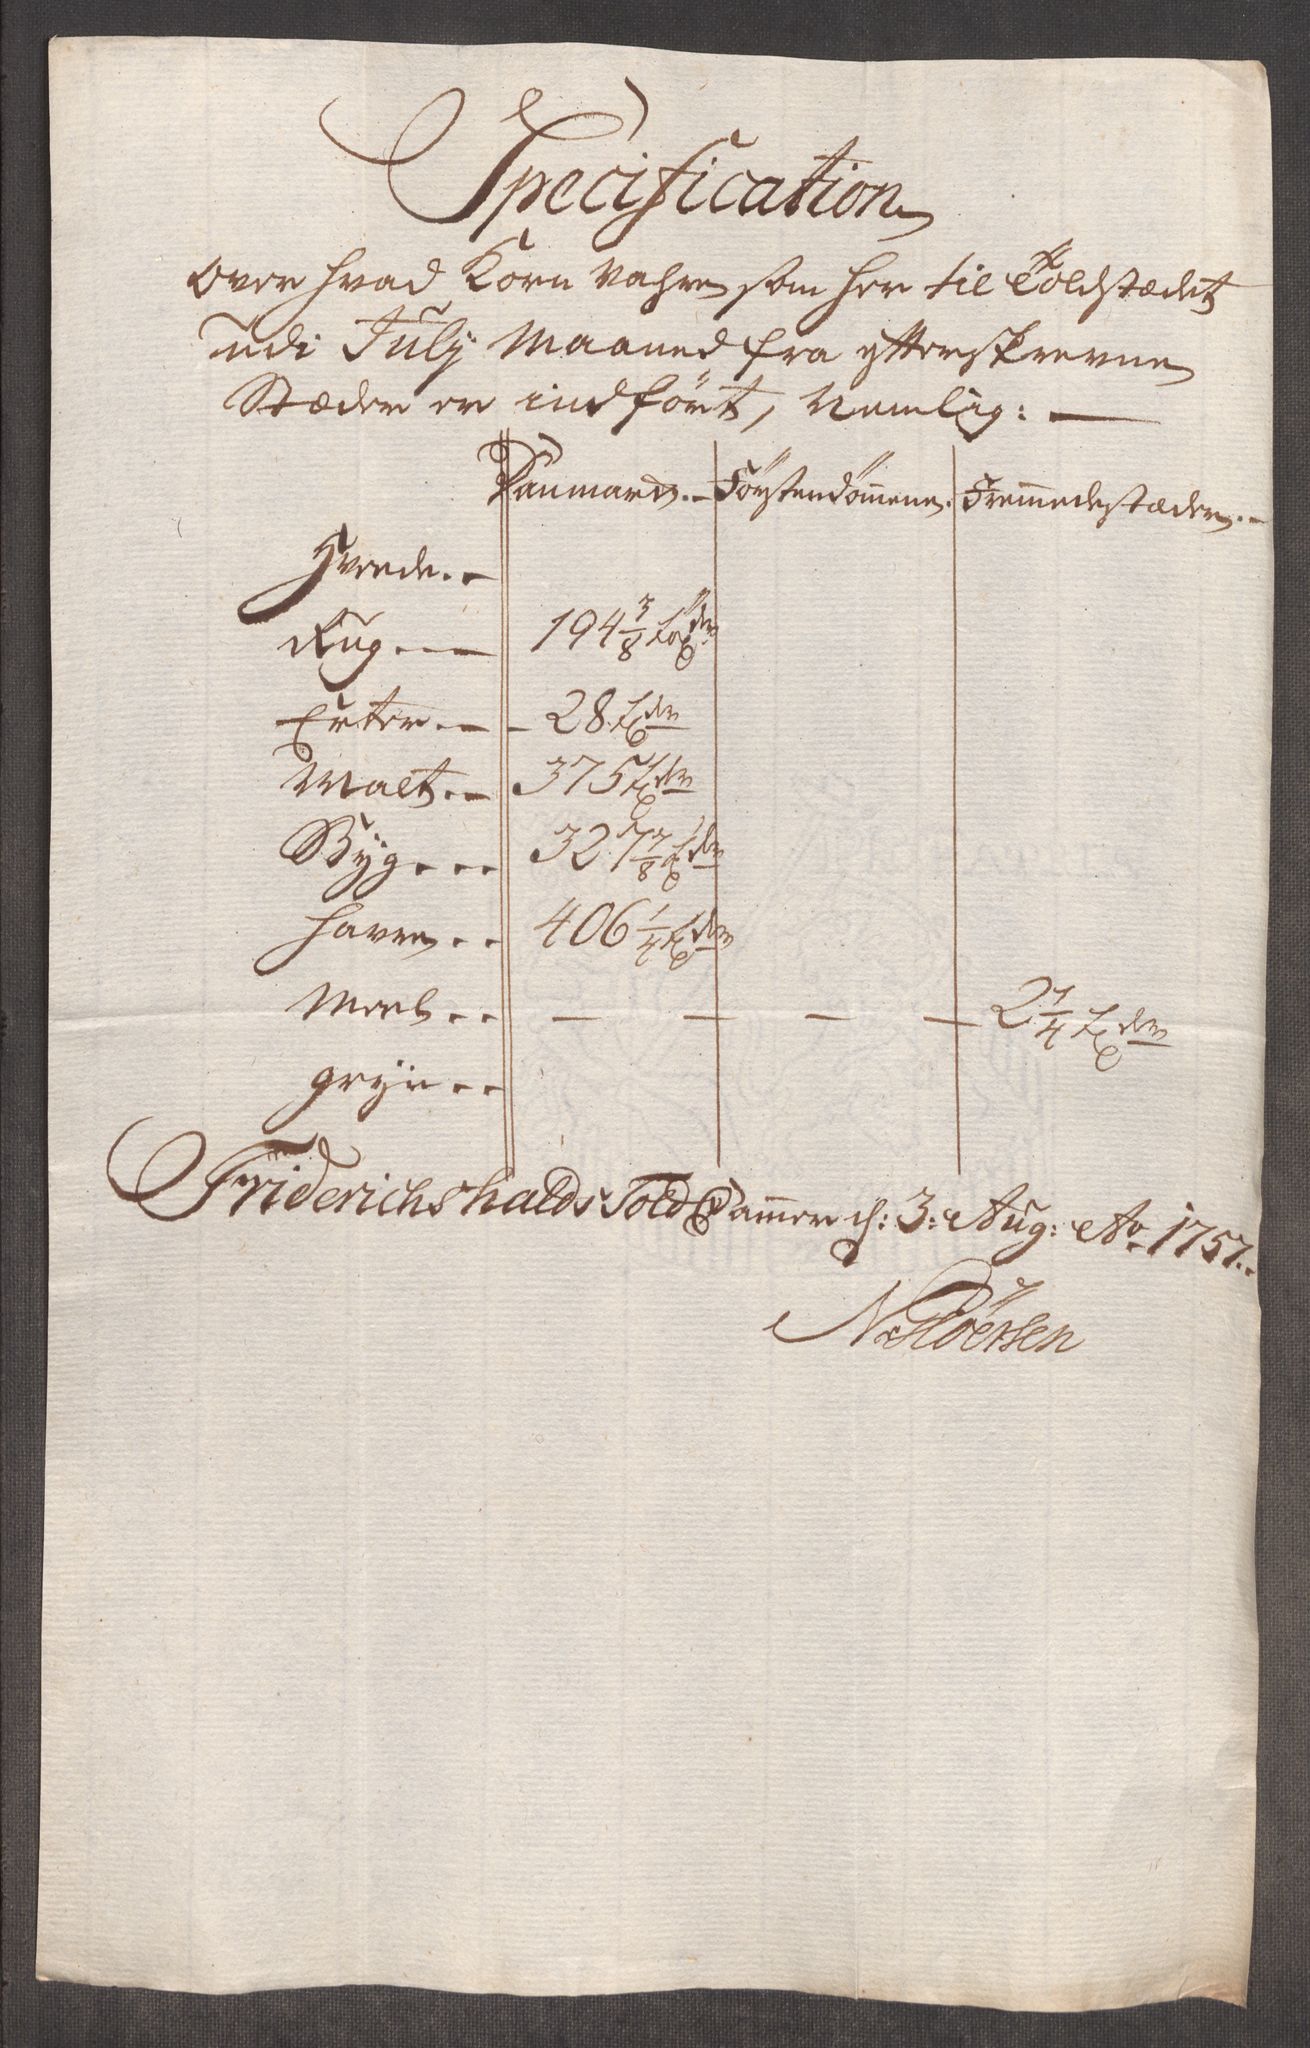 Specification
Over hvad Korn Vahre som her til Toldstædet
udi July Maaned fra ytterskrevne
Stæder er indført, Nemlig:
Danmarck. Förstendömmene. Fremmedestæder.
Hvede
Rug 194 3/8 Tdr
Erter 28 Tdr
Malt 375 Tdr
Byg 327 7/8 Tdr
Havre 406 1/4 Tdr
Meel 2 1/4 Tdr
gryn
Friderichshalds Told Cammer d: 3: Aug: Ao 1757.